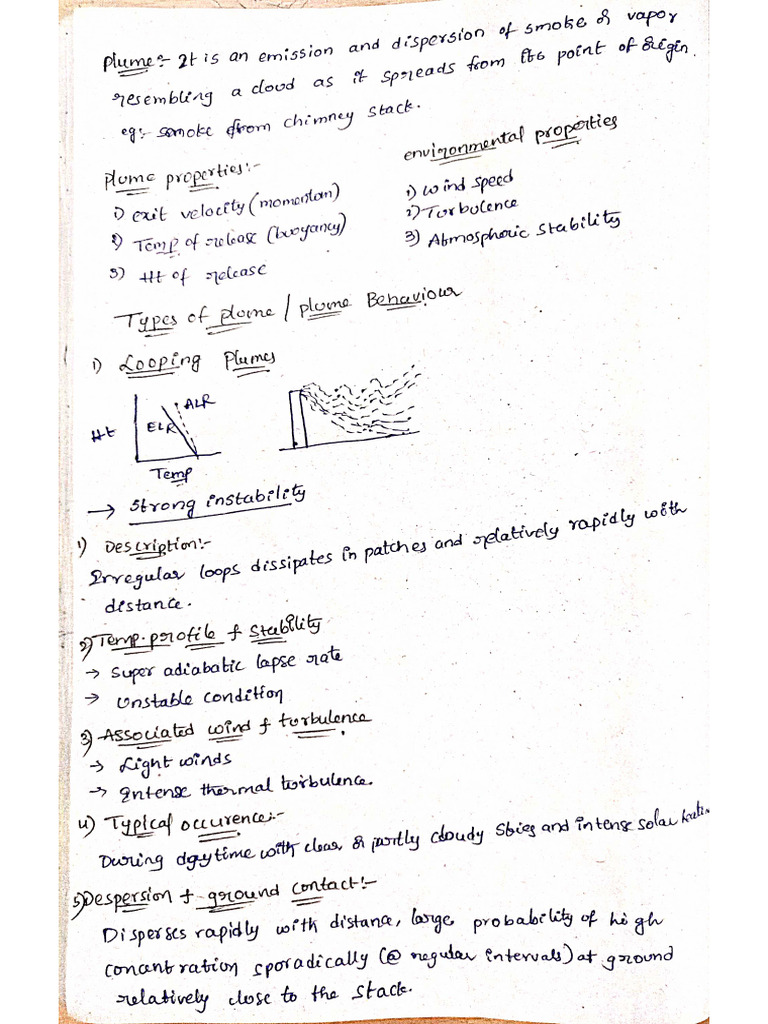 Plume:- It is an emission and dispersion of smoke or vapor
resembling a cloud as it spreads from its point of origin.
eg:- smoke from chimney stack.
Plume properties:-
1) exit velocity (momentum)
2) Temp of release (buoyancy)
3) Ht of release
environmental properties
1) Wind speed
2) Turbulence
3) Atmospheric stability
Types of plume / plume Behaviour
1) Looping Plumes
Ht
ELR
ALR
Temp
→ Strong instability
1) Description:-
Irregular loops dissipates in patches and relatively rapidly with
distance.
2) Temp. profile & Stability
→ Super adiabatic lapse rate
→ Unstable condition
3) Associated wind & turbulence
→ Light winds
→ Intense thermal turbulence.
4) Typical occurence:-
During daytime with clear or partly cloudy skies and intense solar
5) Despersion & ground contact:-
Disperses rapidly with distance, large probability of high
concentration sporadically (@ regular intervals) at ground
relatively close to the stack.